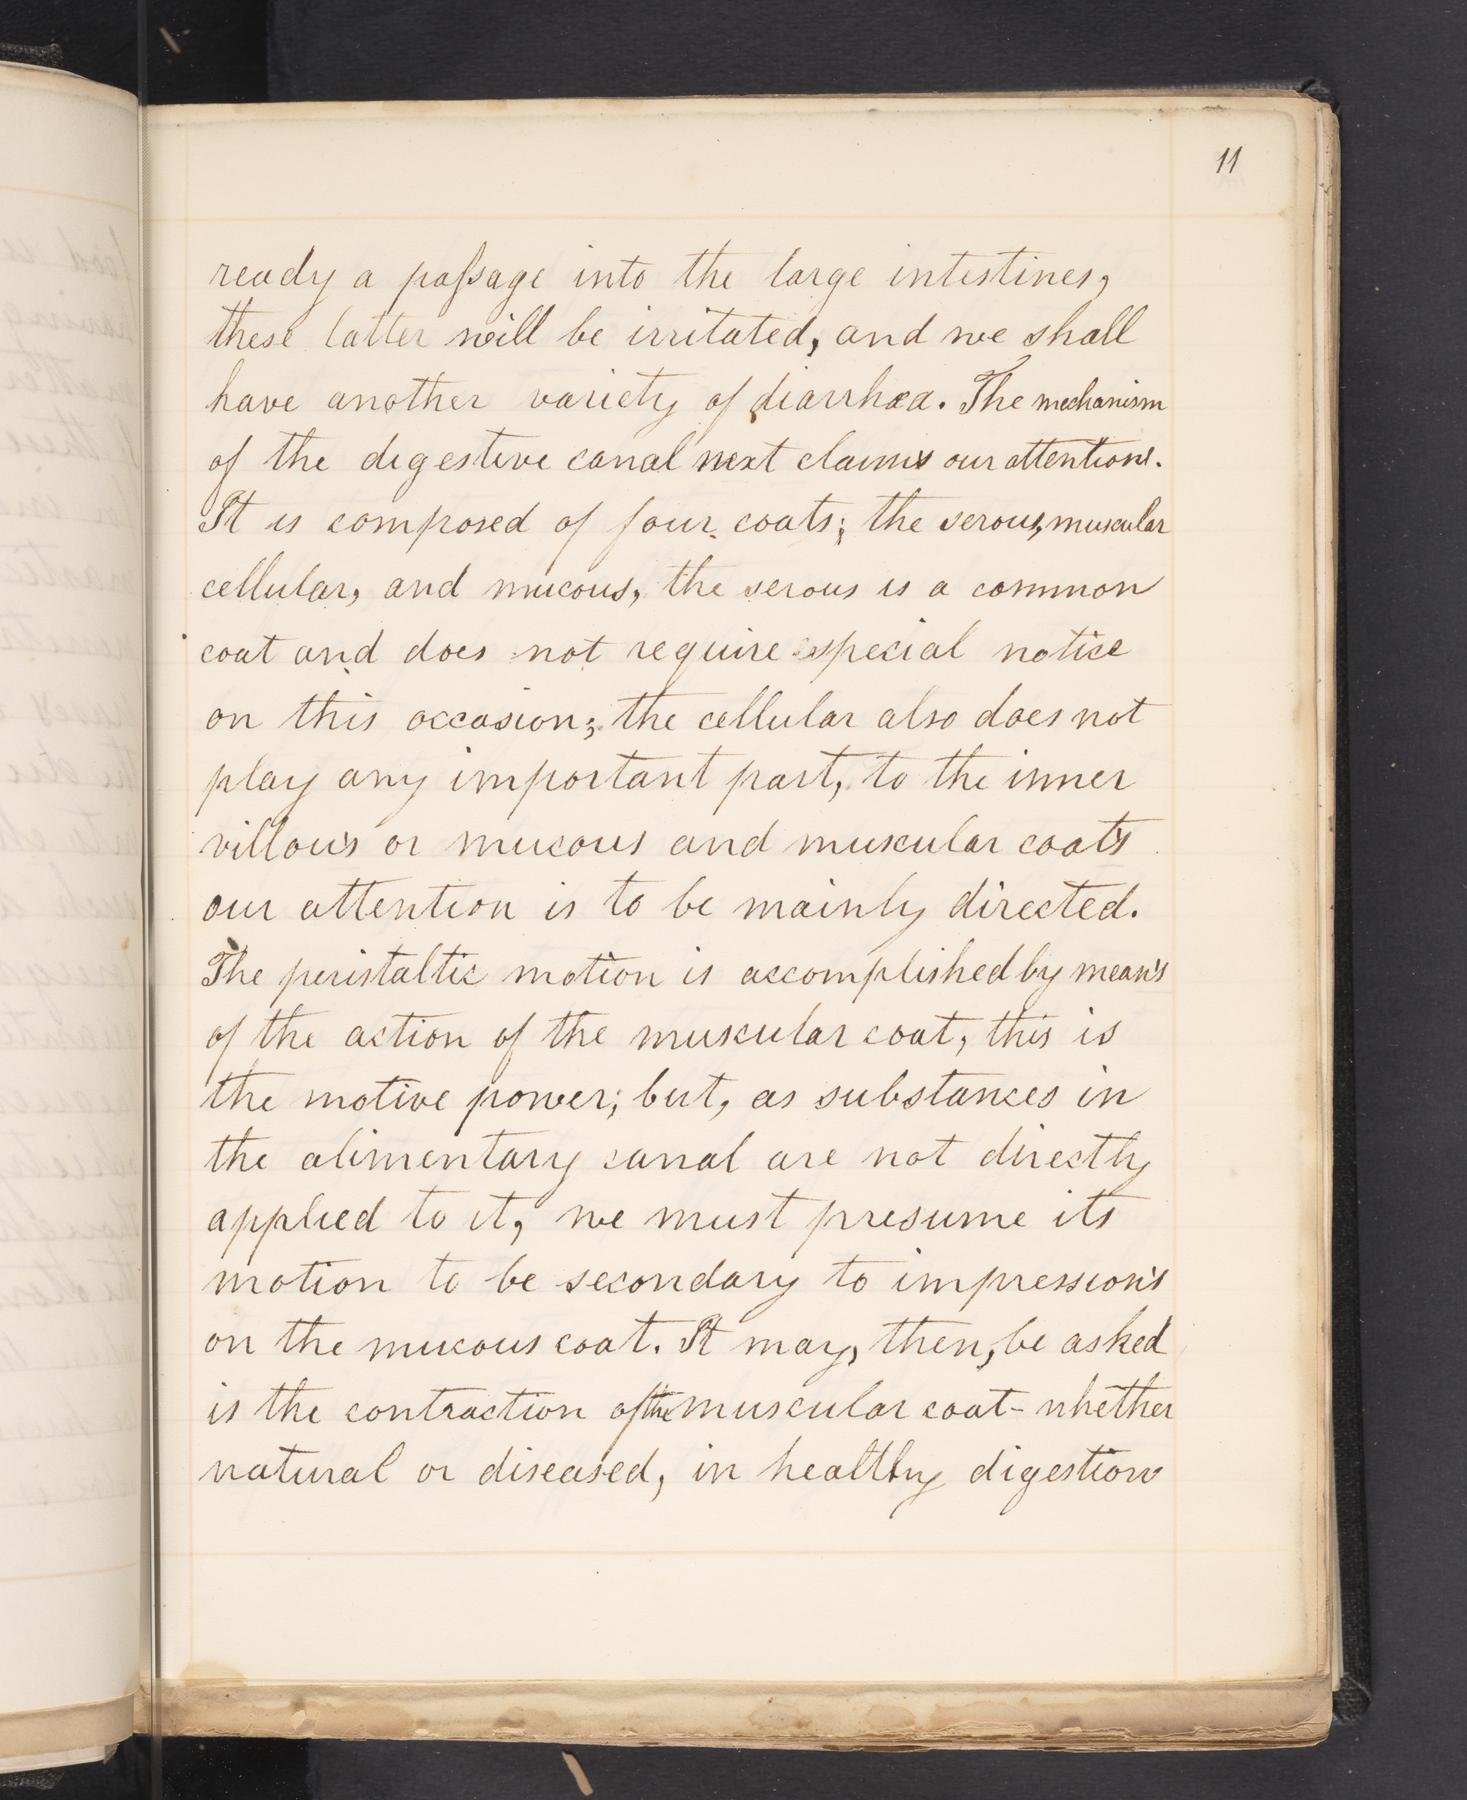 11
ready a passage into the large intestines,
these latter will be irritated, and we shall
have another variety of diarrhœa. The mechanism
of the digestive canal next claims our attentions.
It is composed of four coats; the serous, muscular
cellular, and mucous, the serous is a common
coat and does not require especial notice
on this occasion; the cellular also does not
play any important part, to the inner
villous or mucous and muscular coats
our attention is to be mainly directed.
The peristaltic motion is accomplished by means
of the action of the muscular coat, this is
the motive power; but, as substances in
the alimentary canal are not directly
applied to it, we must presume its
motion to be secondary to impressions
on the mucous coat. It may, then, be asked
is the contraction of the muscular coat - whether
natural or diseased, in healthy digestion